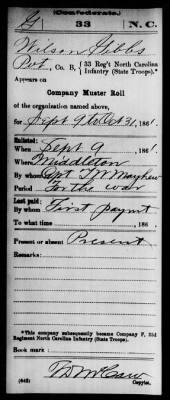 (Confederate.)
G 33 N. C.
Wilson Gibbs
Pvt., Co. B, 33 Reg't North Carolina Infantry (State Troops).*
Appears on
Company Muster Roll
of the organization named above,
for Sept 9 to Oct 31, 1861.
Enlisted:
When Sept 9, 1861.
Where Middleton
By whom Capt T W Mayhew
Period For the war
Last paid:
By whom First paymt
To what time , 186 .
Present or absent Present
Remarks:
*This company subsequently became Company F, 33d
Regiment North Carolina Infantry (State Troops).
Book mark:
(642) Copyist.